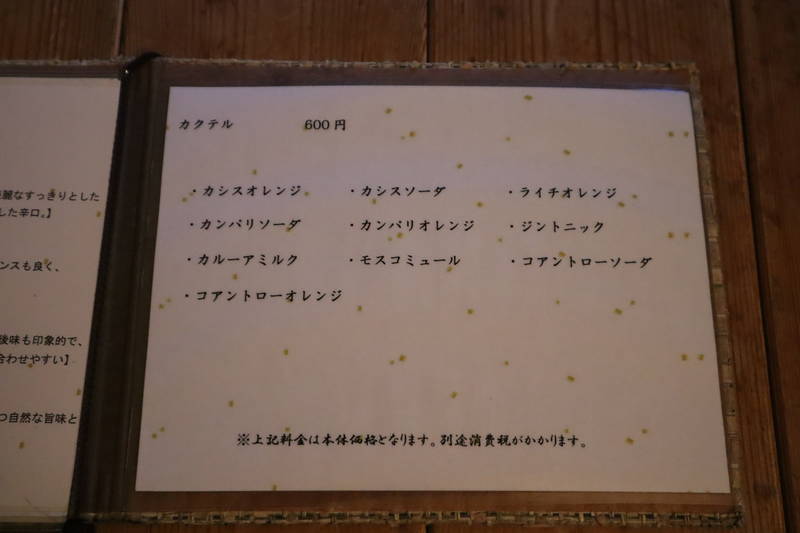 麗なすっきりとした
した辛口。】
ンスも良く、
後味も印象的で、
合わせやすい】
つ自然な旨味と
カクテル 600円
・カシスオレンジ ・カシスソーダ ・ライチオレンジ
・カンパリソーダ ・カンパリオレンジ ・ジントニック
・カルーアミルク ・モスコミュール ・コアントローソーダ
・コアントローオレンジ
※上記料金は本体価格となります。別途消費税がかかります。